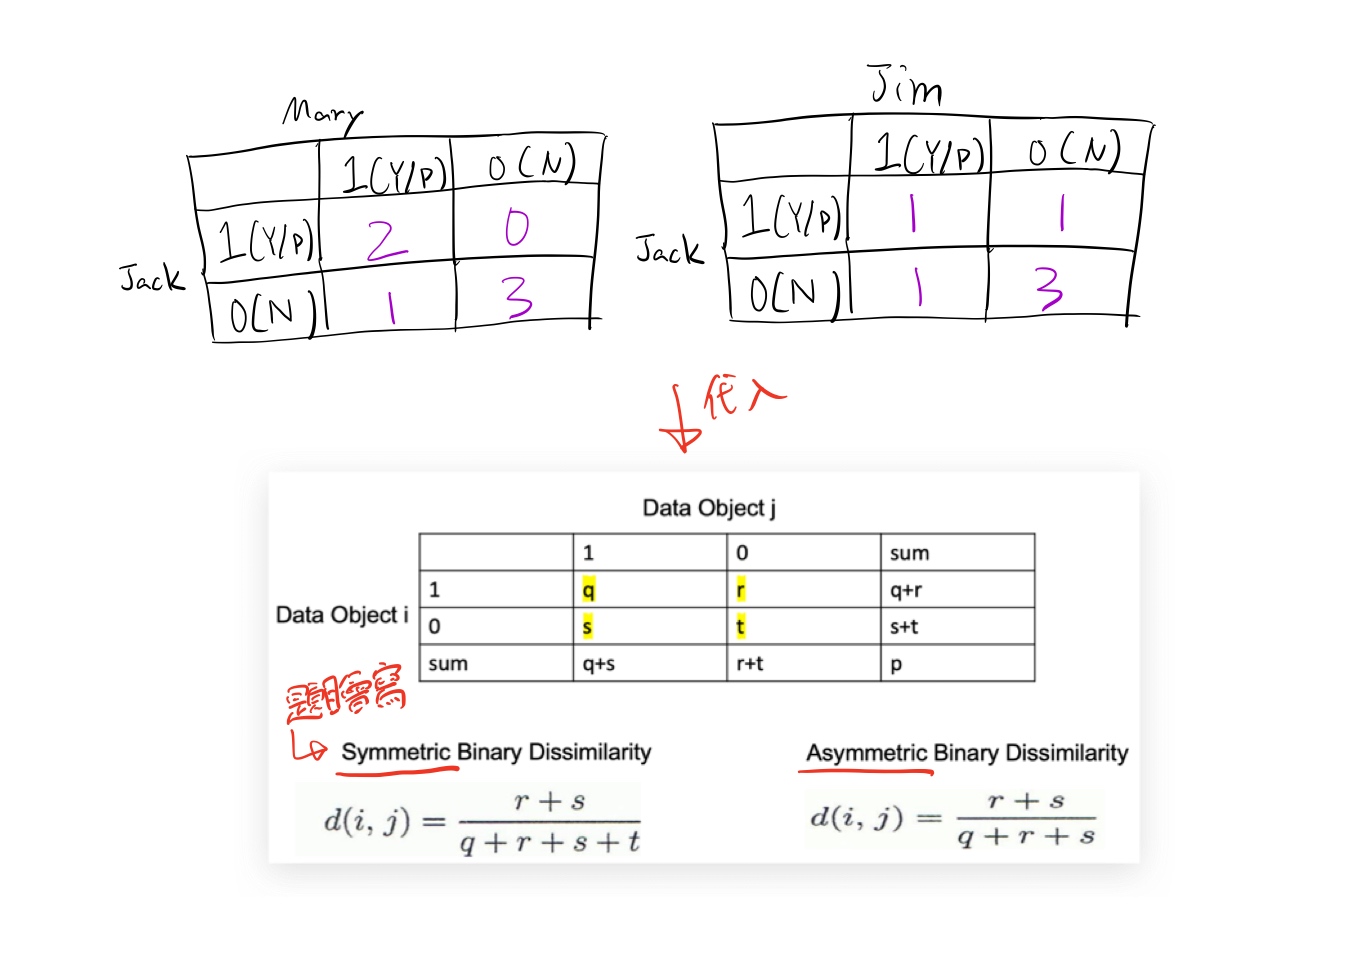 Mary
1(Y/P) 0(N)
Jack
1(Y/P) 2 0
0(N) 1 3
Jim
1(Y/P) 0(N)
Jack
1(Y/P) 1 1
0(N) 1 3
代入
Data Object j
1 0 sum
Data Object i
1 q r q+r
0 s t s+t
sum q+s r+t p
題目會寫
Symmetric Binary Dissimilarity
d(i, j) = \frac{r + s}{q + r + s + t}
Asymmetric Binary Dissimilarity
d(i, j) = \frac{r + s}{q + r + s}